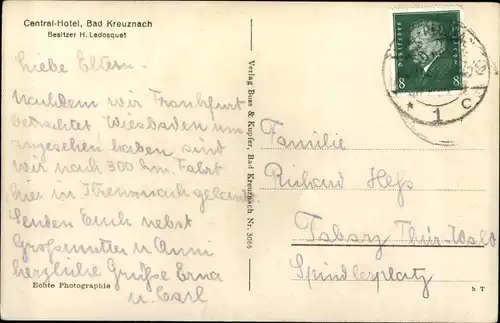 Central-Hotel, Bad Kreuznach
Besitzer H. Ledosquet
Liebe Eltern.
Nachdem wir Frankfurt
betrachtet, Wiesbaden uns
angesehen haben sind
wir nach 300 km. Fahrt
hier in Kreuznach gelandet
Senden Euch nebst
Großmutter u. Anni
herzliche Grüße Erna
u. Carl
Echte Photographie
Verlag Buss & Kupfer, Bad Kreuznach Nr. 3086
8 8
* 1 c
Familie
Richard Heß
Tabarz Thür-Wald
Spindlerplatz
h T